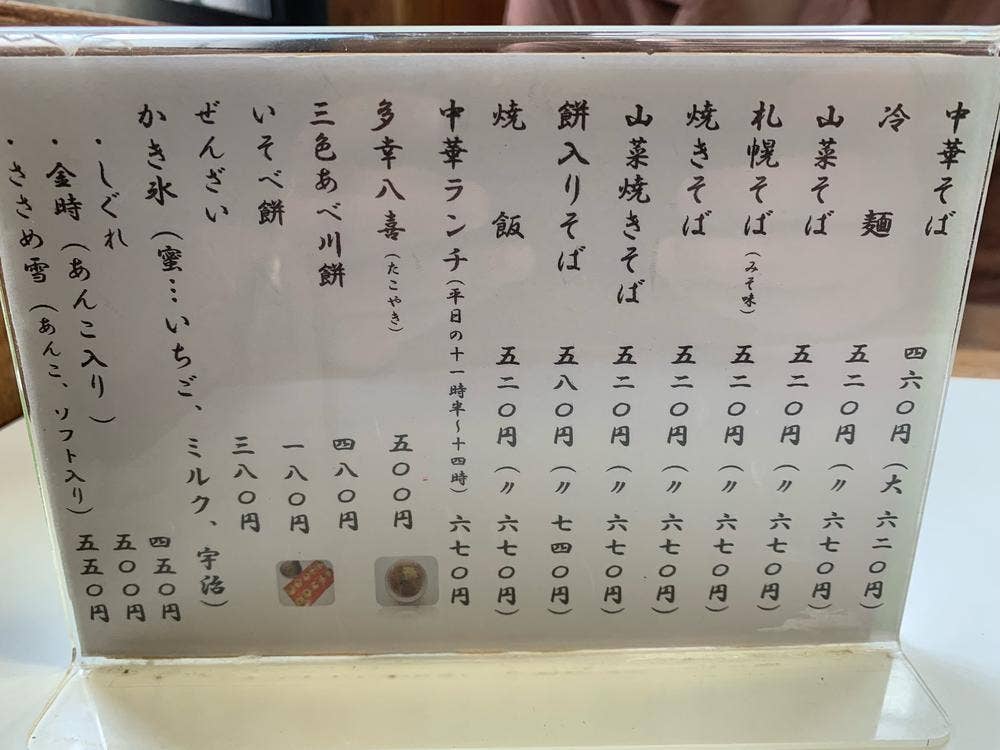 中華そば 四六〇円(大 六二〇円)
冷麺 五二〇円(〃 六七〇円)
山菜そば 五二〇円(〃 六七〇円)
札幌そば(みそ味) 五二〇円(〃 六七〇円)
焼きそば 五二〇円(〃 六七〇円)
山菜焼きそば 五二〇円(〃 六七〇円)
餅入りそば 五八〇円(〃 七四〇円)
焼飯 五二〇円(〃 六七〇円)
中華ランチ(平日の十一時半~十四時) 六七〇円
多幸八喜(たこやき) 五〇〇円
三色あべ川餅 四八〇円
いそべ餅 一八〇円
ぜんざい 三八〇円
かき氷(蜜…いちご、ミルク、宇治)
・しぐれ 四五〇円
・金時(あんこ入り) 五〇〇円
・ささめ雪(あんこ、ソフト入り) 五五〇円